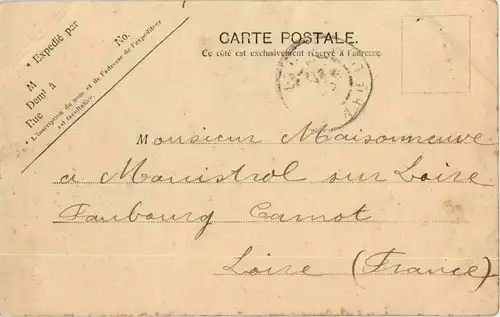 CARTE POSTALE.
Ce côté est exclusivement réservé à l'adresse.
Expédié par
No.
M
Demt à
Rue
L'inscription du nom et de l'adresse de l'expéditeur
est facultative.
Monsieur Maisonneuve
à Monistrol sur Loire
Faubourg Carnot
Loire (France)